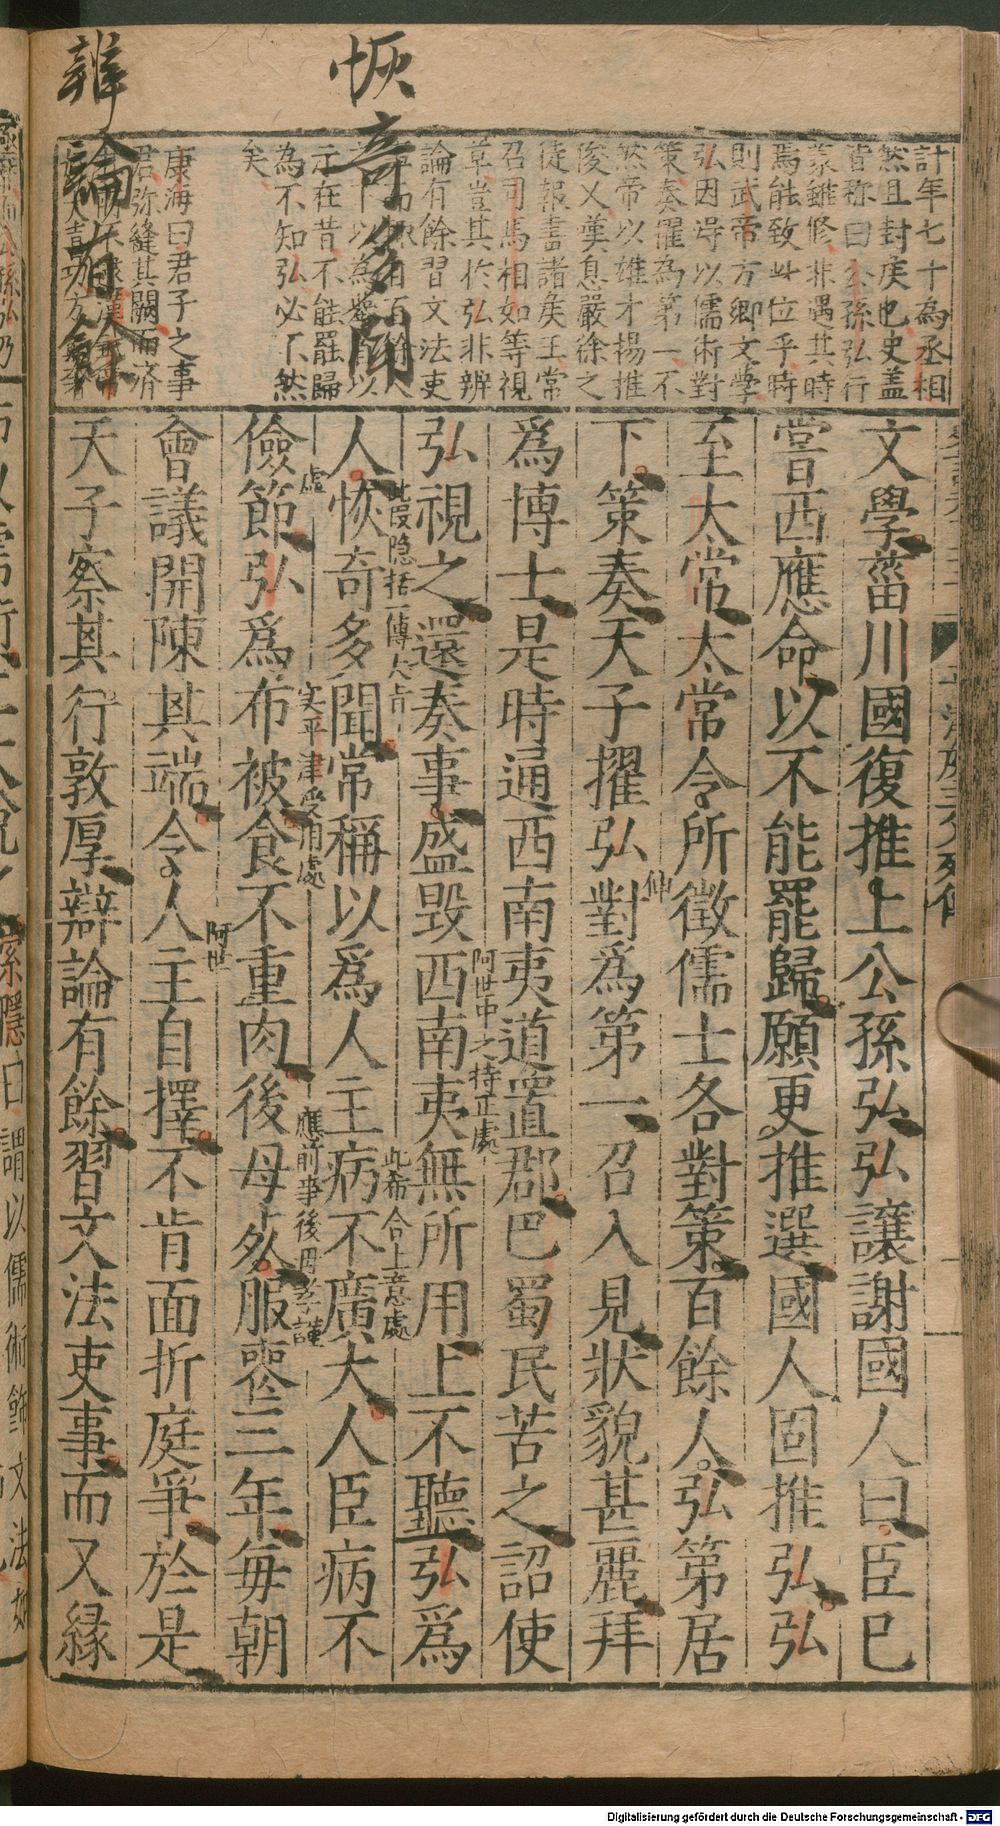 恢奇多聞
辯論有餘
計年七十為丞相
然且封矦也史盖
皆称曰公孫弘行
義雖修非遇其時
焉能致此位乎時
則武帝方郷文學
弘因淂以儒術對
策奏擢為第一不
然帝以雄才揚推
俊乂漢息嚴徐之
徒報書諸矣王常
召司馬相如等視
草豈其於弘非辨
論有餘習文法吏
示在昔不能罷歸
為不知弘必不然
矣
康海曰君子之事
君弥縫其闕而済
文學菑川國復推上公孫弘弘讓謝國人曰臣已
嘗西應命以不能罷歸願更推選國人固推弘弘
至太常太常令所徵儒士各對策百餘人弘第居
下策奏天子擢弘對為第一召入見狀貌甚麗拜
爲博士是時通西南夷道置郡巴蜀民苦之詔使
弘視之還奏事盛毀西南夷無所用上不聽弘爲
人恢奇多聞常稱以爲人主病不廣大人臣病不
儉節弘爲布被食不重肉後母死服喪三年毎朝
會議開陳其端令人主自擇不肯面折庭爭於是
天子察其行敦厚辯論有餘習文法吏事而又縁
仙
阿世中之持正處
此叚隐括一傳大㫖
此希合上意處
虗
文平津受用處
應前事後母孝謹
阿世
索隱曰謂以儒術飾文法如
Digitalisierung gefördert durch die Deutsche Forschungsgemeinschaft - DFG